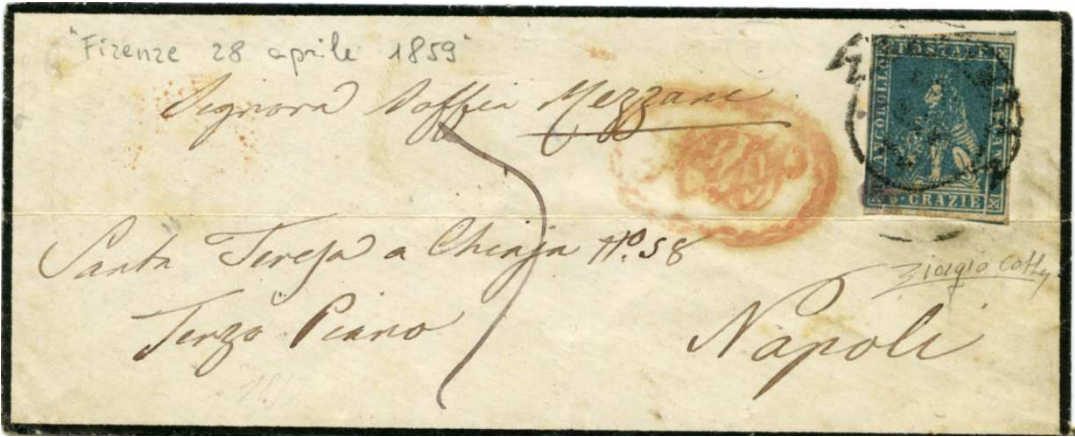 "Firenze 28 aprile 1859"
Signora Soffia Mezzani
Santa Teresa a Chiaja No. 58
Terzo Piano
Napoli
FRANCOBOLLO POSTALE TOSCANO
6 · GRAZIE